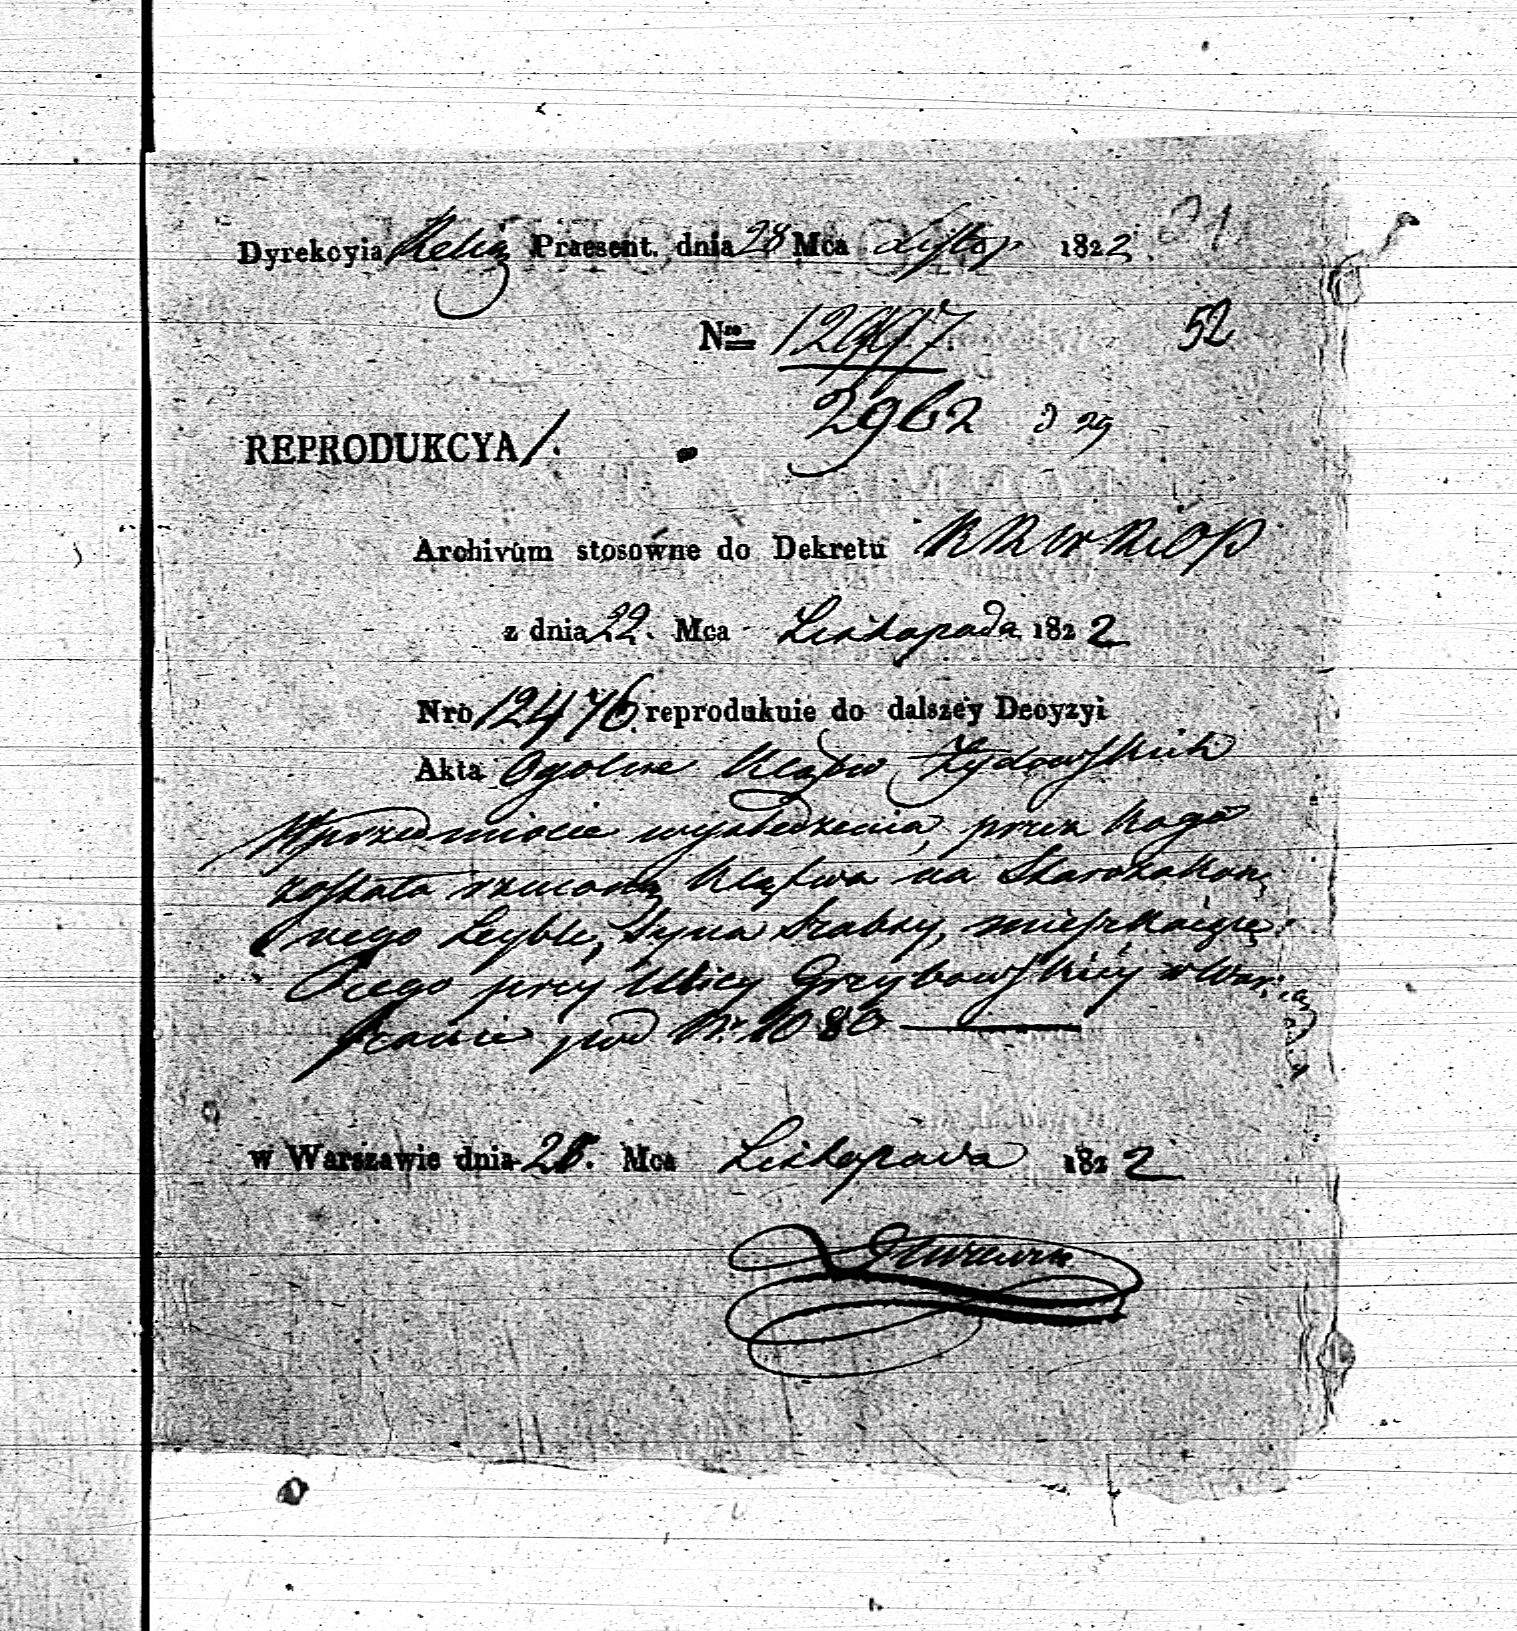 Dyrekcyia Relig Praesent. dnia 28 Mca Listop 1822. 31
Nro 12997 52
2962 29
REPRODUKCYA 1.
Archivum stosówne do Dekretu KRWRiOP
z dnia 22. Mca Listopada 1822
Nro 12476. reprodukuie do dalszéy Decyzyi
Akta Ogolne Klątw Żydowskich
W przedmiocie wysledzenia, przez kogo
została rzucona Klątwa na Starozakon=
nego Leyble, Syna Srabky, mieszkaiące=
go przy Ulicy Grzybowskiéy w War=
szawie pod Nr 1080
w Warszawie dnia 25. Mca Listopada 1822